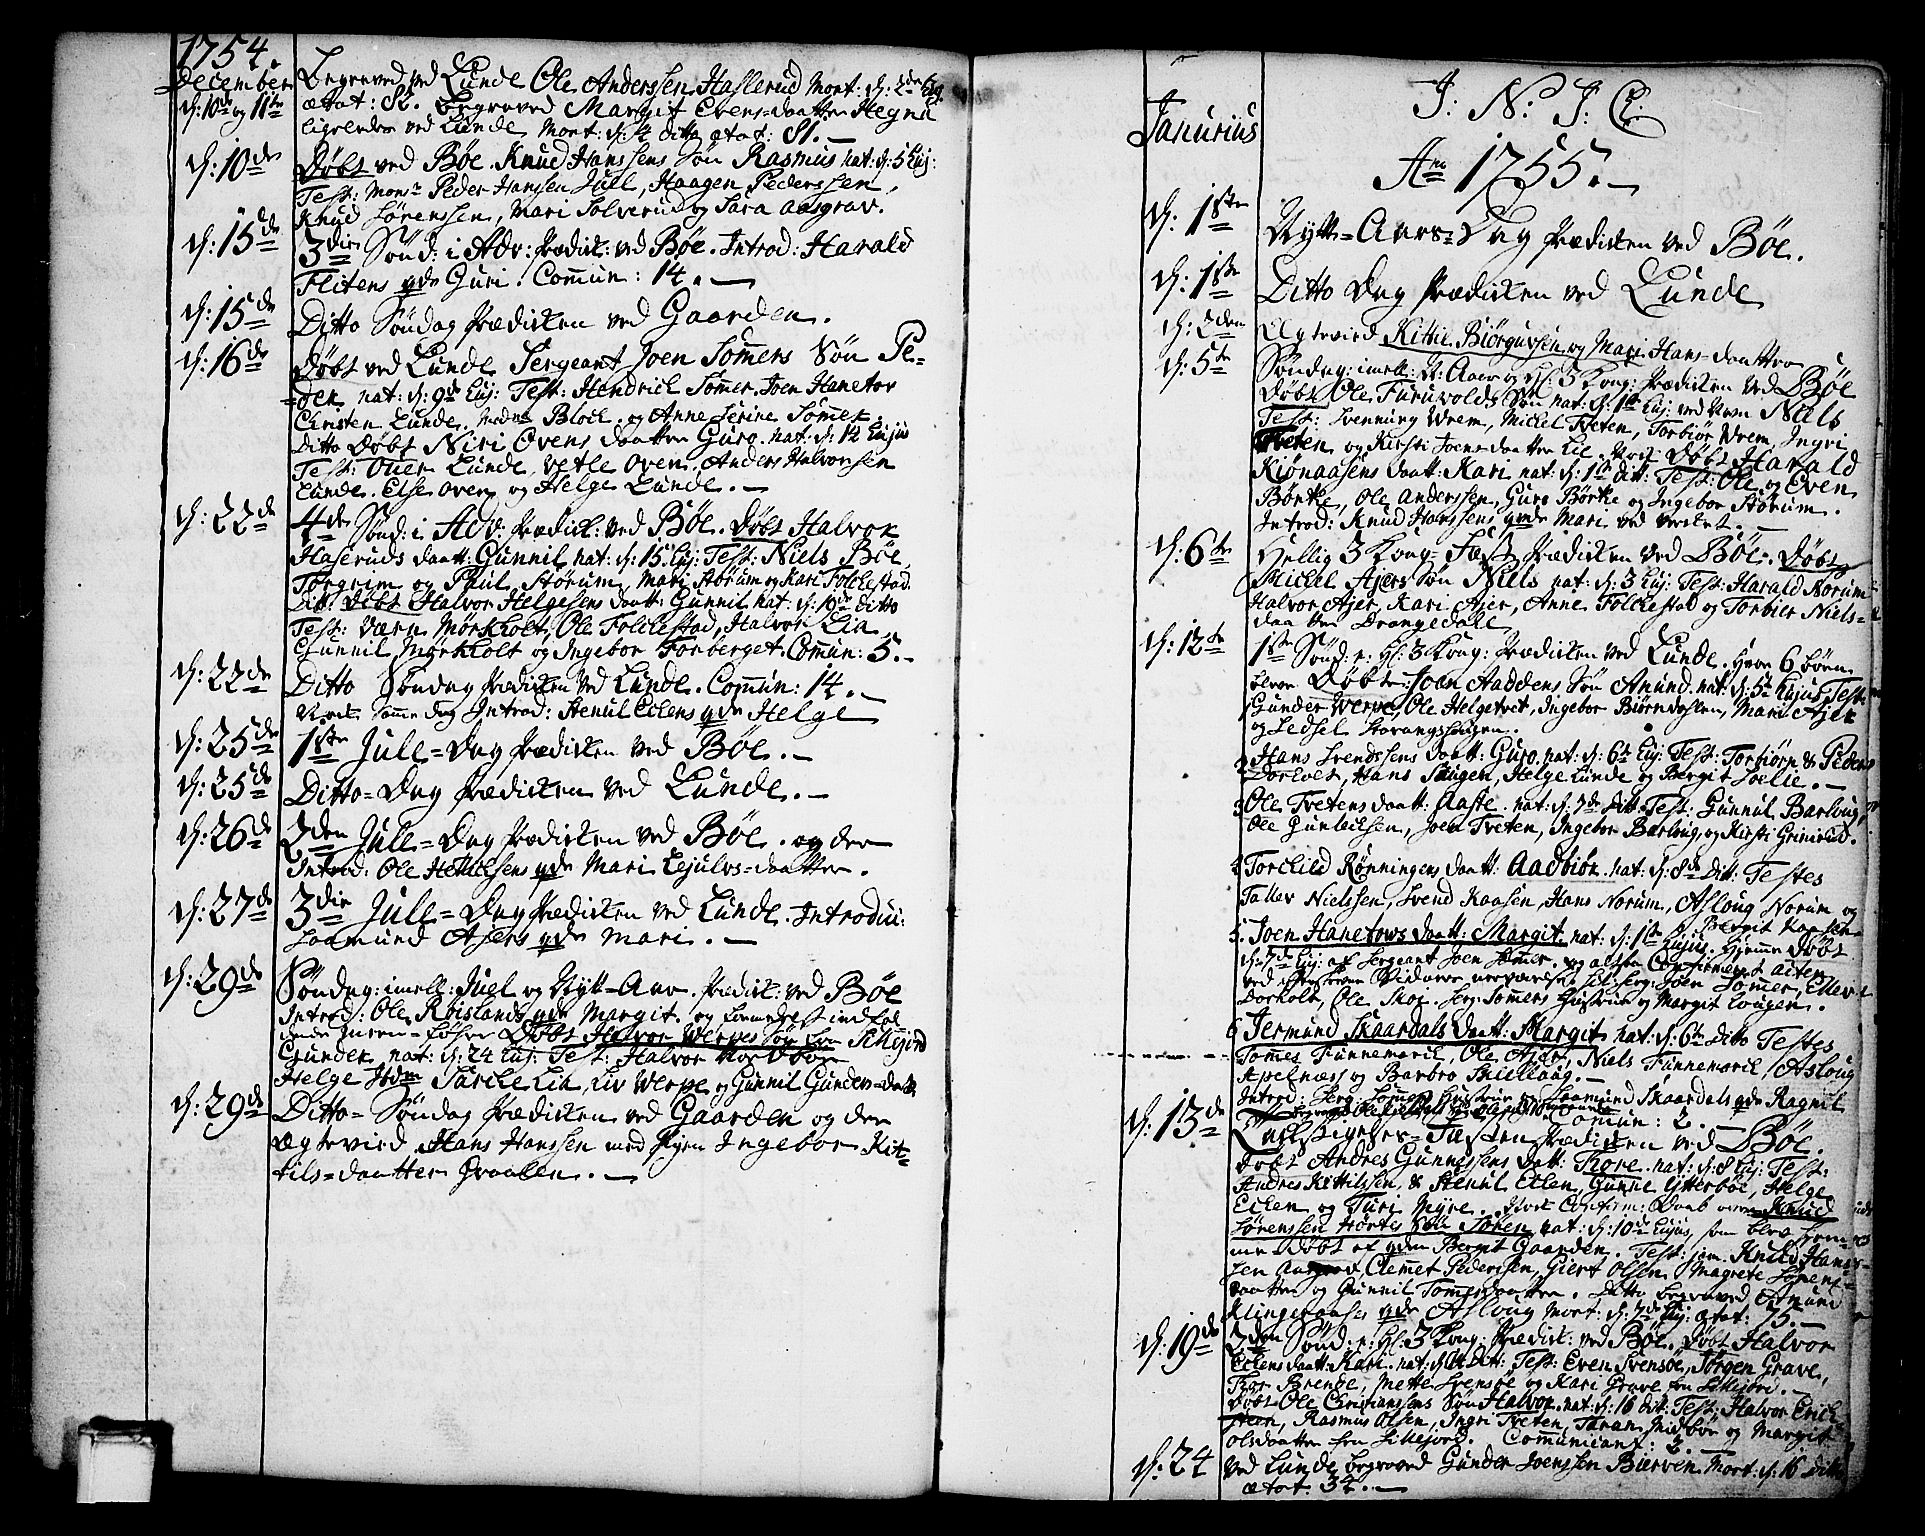 1754.
December
d: 10de og 11te Begraved ved Lunde Ole Anderssen Haslerud Mort: d: 2den Huj.
ætat: 82. Begraved Margit Evens-daatter Hegna
ligeledes ved Lunde Mort: d: 4 ditto ætat: 81.—
d: 10de Døbt ved Bøe Knud Hanssens Søn Rasmus nat: d: 5 Huj:
Test: Monsr Peder Hanssen Juel, Haagen Pederssen,
Knud Sørenssen, Mari Solverud og Sara Aasgrav.
d: 15de 3die Sønd: i Adv: Prædik: ved Bøe. Introd: Harald
Flitens qde Guri. Commun: 14.—
d: 15de Ditto Søndag Prædicken ved Gaarden.
d: 16de Døbt ved Lunde Sergeant Joen Sømers Søn Pe-
=der nat: d: 9de Huj: Test: Hendrich Sømer, Joen Hanetov
Christen Lunde, Madme Block og Anne Serine Sømer.
Ditto Døbt Niri Ovens daatter Guro nat: d: 12 Hujus
Test: Ouer Lunde, Vetle Oven, Anders Halvorsen
Lunde, Else Oven og Helge Lunde.—
d: 22de 4de Sønd: i Adv: Prædick: ved Bøe. Døbt Halvor
Haseruds daatt: Gunnil nat: d: 15 Huj: Test: Niels Bøe,
Torgrim og Poul Størum, Mari Størum og Kari Folchestad.
Ditt: Døbt Halvor Helgesens daatt: Gunnil nat: d: 19de ditto
Test:Værn Mørkholt, Ole Folchestad, Halvor Lia
Gunnil Mørkholt og Ingebor Forberget. Comun: 5.—
d: 22de Ditto Søndag Prædicken ved Lunde. Commun: 14.—
Samme dag Introd: Stenul Eilens qde Helge
d: 25de 1ste Jule=Dag Prædicken ved Bøe.—
d: 25de Ditto=Dag Prædicken ved Lunde.—
d: 26de 2den Jule=Dag Prædicken ved Bøe. og der
Introd: Ole Hellichsens qde Mari Lejulvs=daatter.
d: 27de 3die Jule=Dag Prædicken ved Lunde. Introdu:
Saamund Ajers qde Mari.—
d: 29de Søndag: imell: Juel og Nytt-Aar. Prædik: ved Bøe
Introd: Ole Røislands qde Margit. og
Døbt Halvor Werpes Søn fra Sillejord
Gunder nat: d: 24 Huj: Test: Halvor Nordbøe
Helge ibdm Tarkel Lia, Liv Werpe og Gunnil Gunders=daatt:
d: 29de Ditto= Søndag Prædicken ved Gaarden og der
Ægtevied Hans Hanssen med Pigen Ingebor Kit=
tils=daatter Graalien.—
J: N: J: C:
Januarius
Ao 1755.—
d: 1ste Nytt=Aars=Dag Prædicken ved Bøe.
d: 1ste Ditto Dag Prædicken ved Lunde
d: 2den Ægtevied Kittil Biørgufsen og Mari Hans=daatter
d: 5te Søndag: imell: N: Aar og Hl: 3 Kong: Prædicken ved Bøe
Døbt Ole Furuvolds Søn nat: d: 1ste Huj: ved Navn Niels
Test: Svennung Wrem, Michel Tveten, Torbiør Wrem, Ingri
Tveten og Kirsti Joens daatter Lie. Døbt Harald
Kiønaasens daatt: Kari nat: d: 1ste ditt: Test: Ole og Even
Børtke, Ole Anderssen, Guro Børtke og Ingebor Størum.
Introd: Knud Hanssens qvde Mari ved Verket.—
d: 6te Hellig 3 Kong= Fæst Prædicken ved Bøe. Døbt
Michel Ajers Søn Niels nat: d: 3 Huj: Test: Harald Norum
Halvor Ajer, Kari Ajer, Anne Folchestad og Torbier Niels-
daatter Drangedale
d: 12te 1ste Sønd: p: Hl: 3 Kong: Prædicken ved Lunde. Hvor 6 børn
bleve Døbt: Joen Aaddens Søn Anund nat: d: 5te Hujus. Test:
Gunder Werpe, Ole Helgetvet, Ingebor Biørndalen, Mari Ajer
og Sedsel Storangshougen.
2 Hans Svendssens daatt: Guro. nat: d: 6te Huj: Test: Torbiørn & Peder
Dorholt, Hans Haugen, Helge Lunde og Bergit Solie.—
3 Ole Tvetens daatt: Aaste. nat: d: 7de ditt: Test: Gunnul Barloug,
Ole Gunleiksen, Joen Tveten, Ingebor Barloug og Kirsti Grimerud.
4 Torchild Rønningens daatt: Aadbiør. nat: d: 8de Ditt: Testes
Tallev Nielssen, Svend Kaasen, Hans Norum, Asloug Norum og
Bergit Kaasen
5. Joen Hanetows daatt: Margit. nat: d: 1ste Hujus. Hjemme Døbt
d: 7de Huj: af Sergeant Joen Sømer, og altsaa Confirmert
ved Serg: Joen Sømer, Ellev
Dorholt, Ole Skoe, Serg: Sømers Hustrue og Margit Lougan.
6 Jermund Skaardals daatt: Margit nat: d: 6te Ditto Testes
Tomes Funnemarck, Ole Ajer, Niels Funnemarck, Aslong
Apelnæss og Barbro Skiellaag.—
Introd: Serg: Sømers Hustrue og Saamund Skaardals qde Ragnil
Comun: 2.—
d: 13de Tacksigelses=Fæsten Prædicken ved Bøe.
Døbt Andres Gunnessens daatt: Tore. nat: d: 8 Huj: Test:
Andres Kittilssen, & Stenul Eilen, Gunne Ytterbøe, Helge
Eilen og Turi Myre. Confirm: Daab over Knud
Sørenssen Hørtes Søn Søren nat: d: 10de Hujus, som blev hjem-
me Døbt af qden Bergit Gaarden. Test: jom. Knud Hans-
sen Clemet Pederssen, Giert Olsen Magrete Sørens-
daatter og Gunnil Tomesdaatter. Ditto begraved Anund
Klingeraases qde Asloug mort. d: 7de Huj: ætat: 75.—
d: 19de 2den Sønd: p: Hl: 3 Kong: Prædick: ved Bøe. Døbt Halvor
Eilens daatt: Kari. nat: d: 12 ditt: Test: Even Svensøe, Jørgen Grave,
Tor Brende, Mette Svensøe og Kari Grave fra Sillejord.—
Døbt Ole Christianssens Søn Halvor. nat: d: 16 dit: Test: Halvor Erich
Steen, Rasmus Olsen, Ingri Tveten, Taran Midbøe og Margit
Olsdaatter fra Sillejord. Communicant: 3.—
d: 24 Ved Lunde begraved Gunder Joenssen Bierven Mort: d: 16 ditto
ætat: 34.—